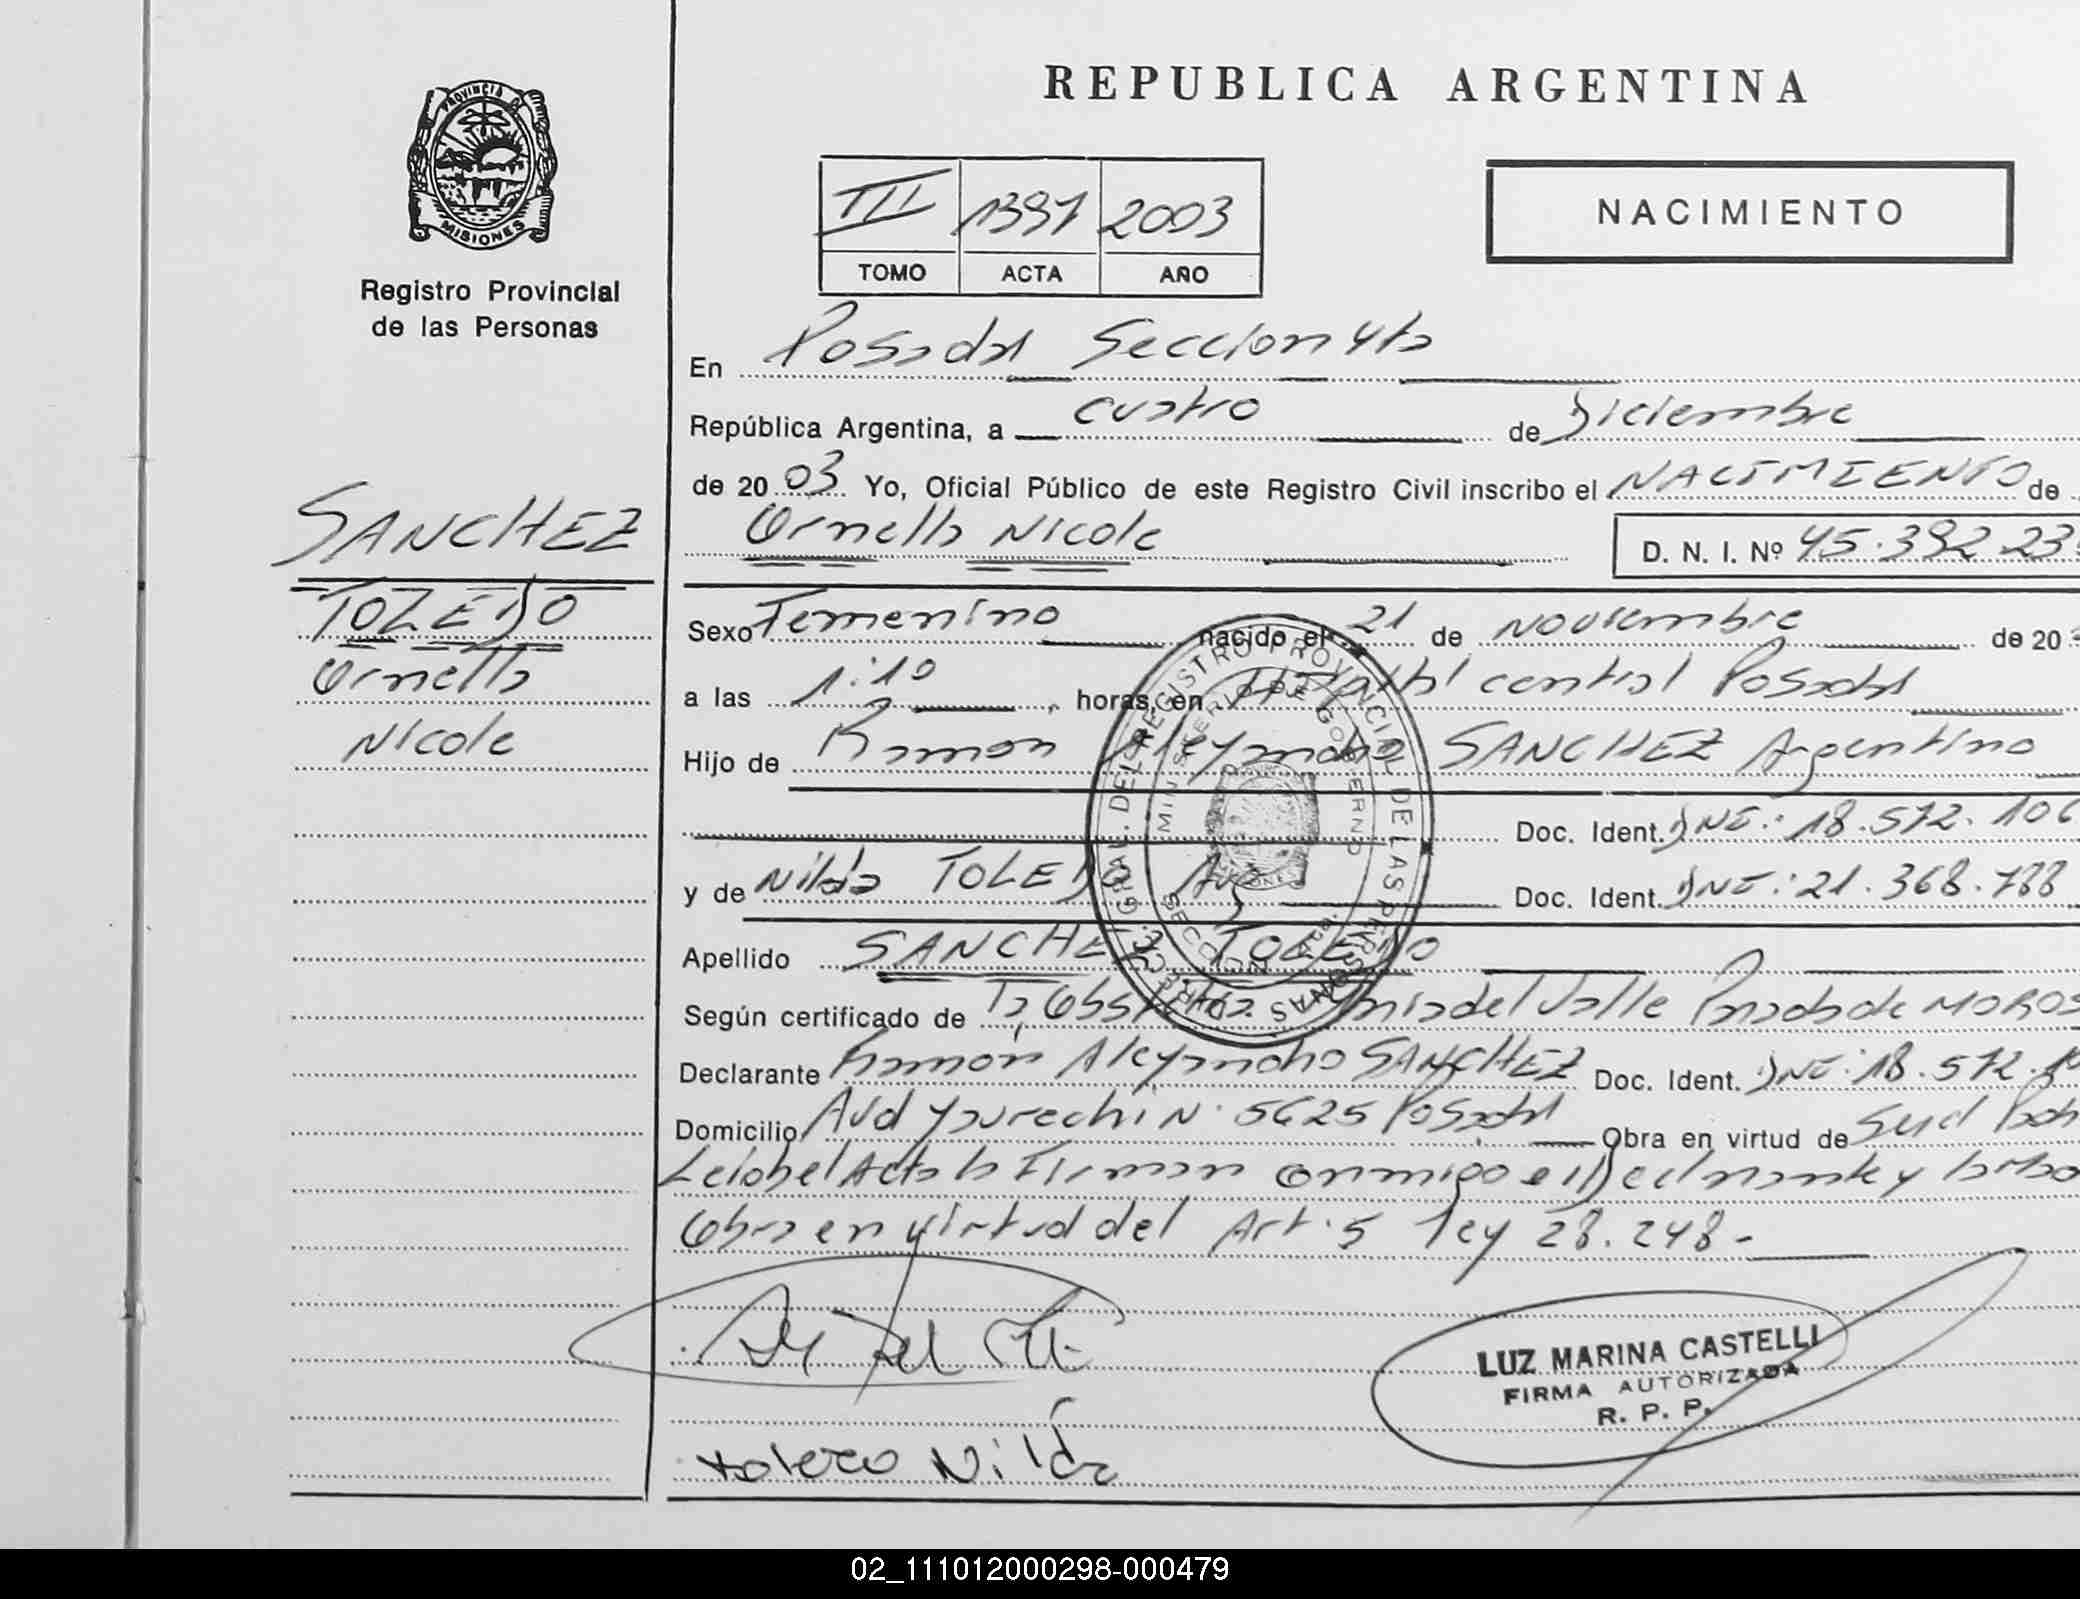 REPUBLICA ARGENTINA
PROVINCIA D
MISIONES
Registro Provincial
de las Personas
III 1397 2003
TOMO ACTA AÑO
NACIMIENTO
En Posadas Seccion 4ta
República Argentina, a cuatro de Diciembre
de 2003 Yo, Oficial Público de este Registro Civil inscribo el NACIMIENTO de
Ornella Nicole D. N. I. Nº 45.392.23
SANCHEZ
TOLEDO
Ornella
Nicole
Sexo Femenino nacido el 21 de Noviembre de 20
a las 1:10, horas, en central Posadas
Hijo de Ramon Alejandro SANCHEZ Argentino
Doc. Ident. DNI.: 18.572.106
y de Nilda TOLEDO Arg Doc. Ident. DNI.: 21.368.788
Apellido SANCHEZ TOLEDO
Según certificado de la Obstetra. del Valle Posada de MOROS
Declarante Ramón Alejandro SANCHEZ Doc. Ident. DNI: 18.572.10
Domicilio Avd Yaurechi N. 5625 Posadas Obra en virtud de Sud
Leida el Acta la Firman conmigo el Declarante y la
Obra en virtud del Art. 5 ley 28.248-
DIRECC. GRAL. DEL REGISTRO PROVINCIAL DE LAS PERSONAS
MINISTERIO DE GOBIERNO
SECCION 4ta.
LUZ MARINA CASTELLI
FIRMA AUTORIZADA
R. P. P.
toledo Nilda
02_111012000298-000479